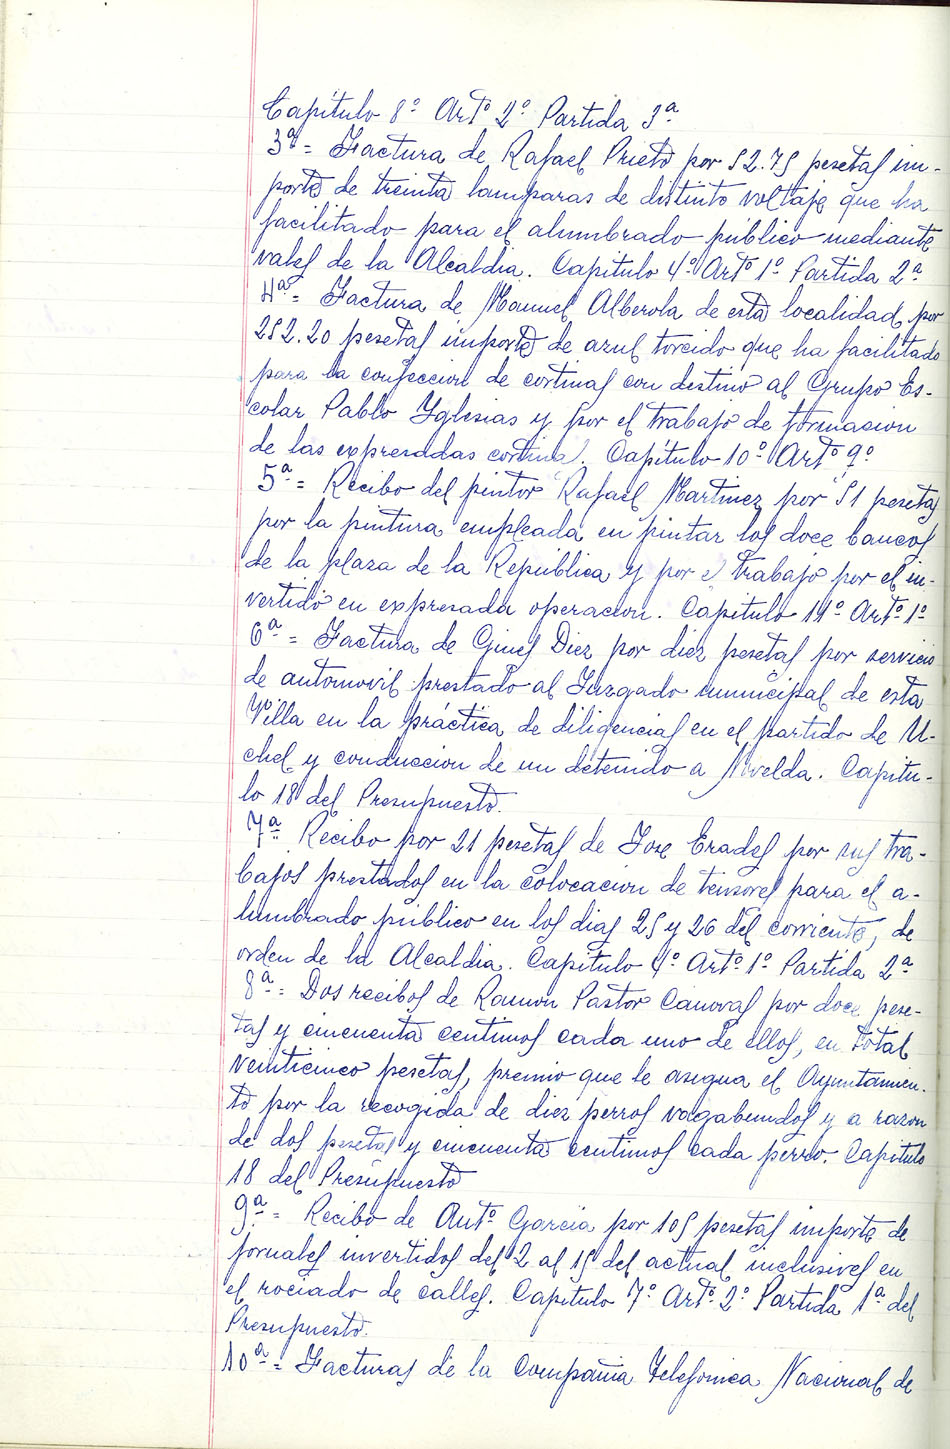 Capítulo 8º Artº 2º Partida 3ª
3ª = Factura de Rafael Prieto por 52.75 pesetas im-
porte de treinta lamparas de distinto voltaje que ha
facilitado para el alumbrado público mediante
vales de la Alcaldia. Capitulo 4º Artº 1º Partida 2ª
4ª = Factura de Manuel Alberola de esta localidad por
252.20 pesetas importe de azul torcido que ha facilitado
para la confeccion de cortinas con destino al Grupo Es-
colar Pablo Yglesias y por el trabajo de formacion
de las expresadas cortinas. Capítulo 10º Artº 9º
5ª = Recibo del pintor Rafael Martinez por 51 pesetas
por la pintura empleada en pintar los doce bancos
de la plaza de la República y por el trabajo por el in-
vertido en expresada operacion. Capitulo 11º Artº 1º
6ª = Factura de Gines Diez por diez pesetas por servicio
de automovil prestado al Juzgado municipal de esta
Villa en la práctica de diligencias en el partido de U-
chel y conduccion de un detenido a Novelda. Capitu-
lo 18 del Presupuesto.
7ª Recibo por 21 pesetas de Jose Erades por sus tra-
bajos prestados en la colocacion de tensores para el a-
lumbrado público en los dias 25 y 26 del corriente, de
orden de la Alcaldia. Capitulo 4º Artº 1º Partida 2ª
8ª = Dos recibos de Ramon Pastor Canovas por doce pese-
tas y cincuenta centimos cada uno de ellos, en total
veinticinco pesetas, premio que le asigua el Ayuntamien-
to por la recogida de diez perros vagabundos y a razon
de dos pesetas y cincuenta centimos cada perro. Capitulo
18 del Presupuesto
9ª = Recibo de Antº Garcia por 105 pesetas importe de
jornales invertidos del 2 al 15 del actual inclusives en
el rociado de calles. Capitulo 7º Artº 2º Partida 1ª del
Presupuesto.
10ª = Facturas de la Compañia Telefonica Nacional de